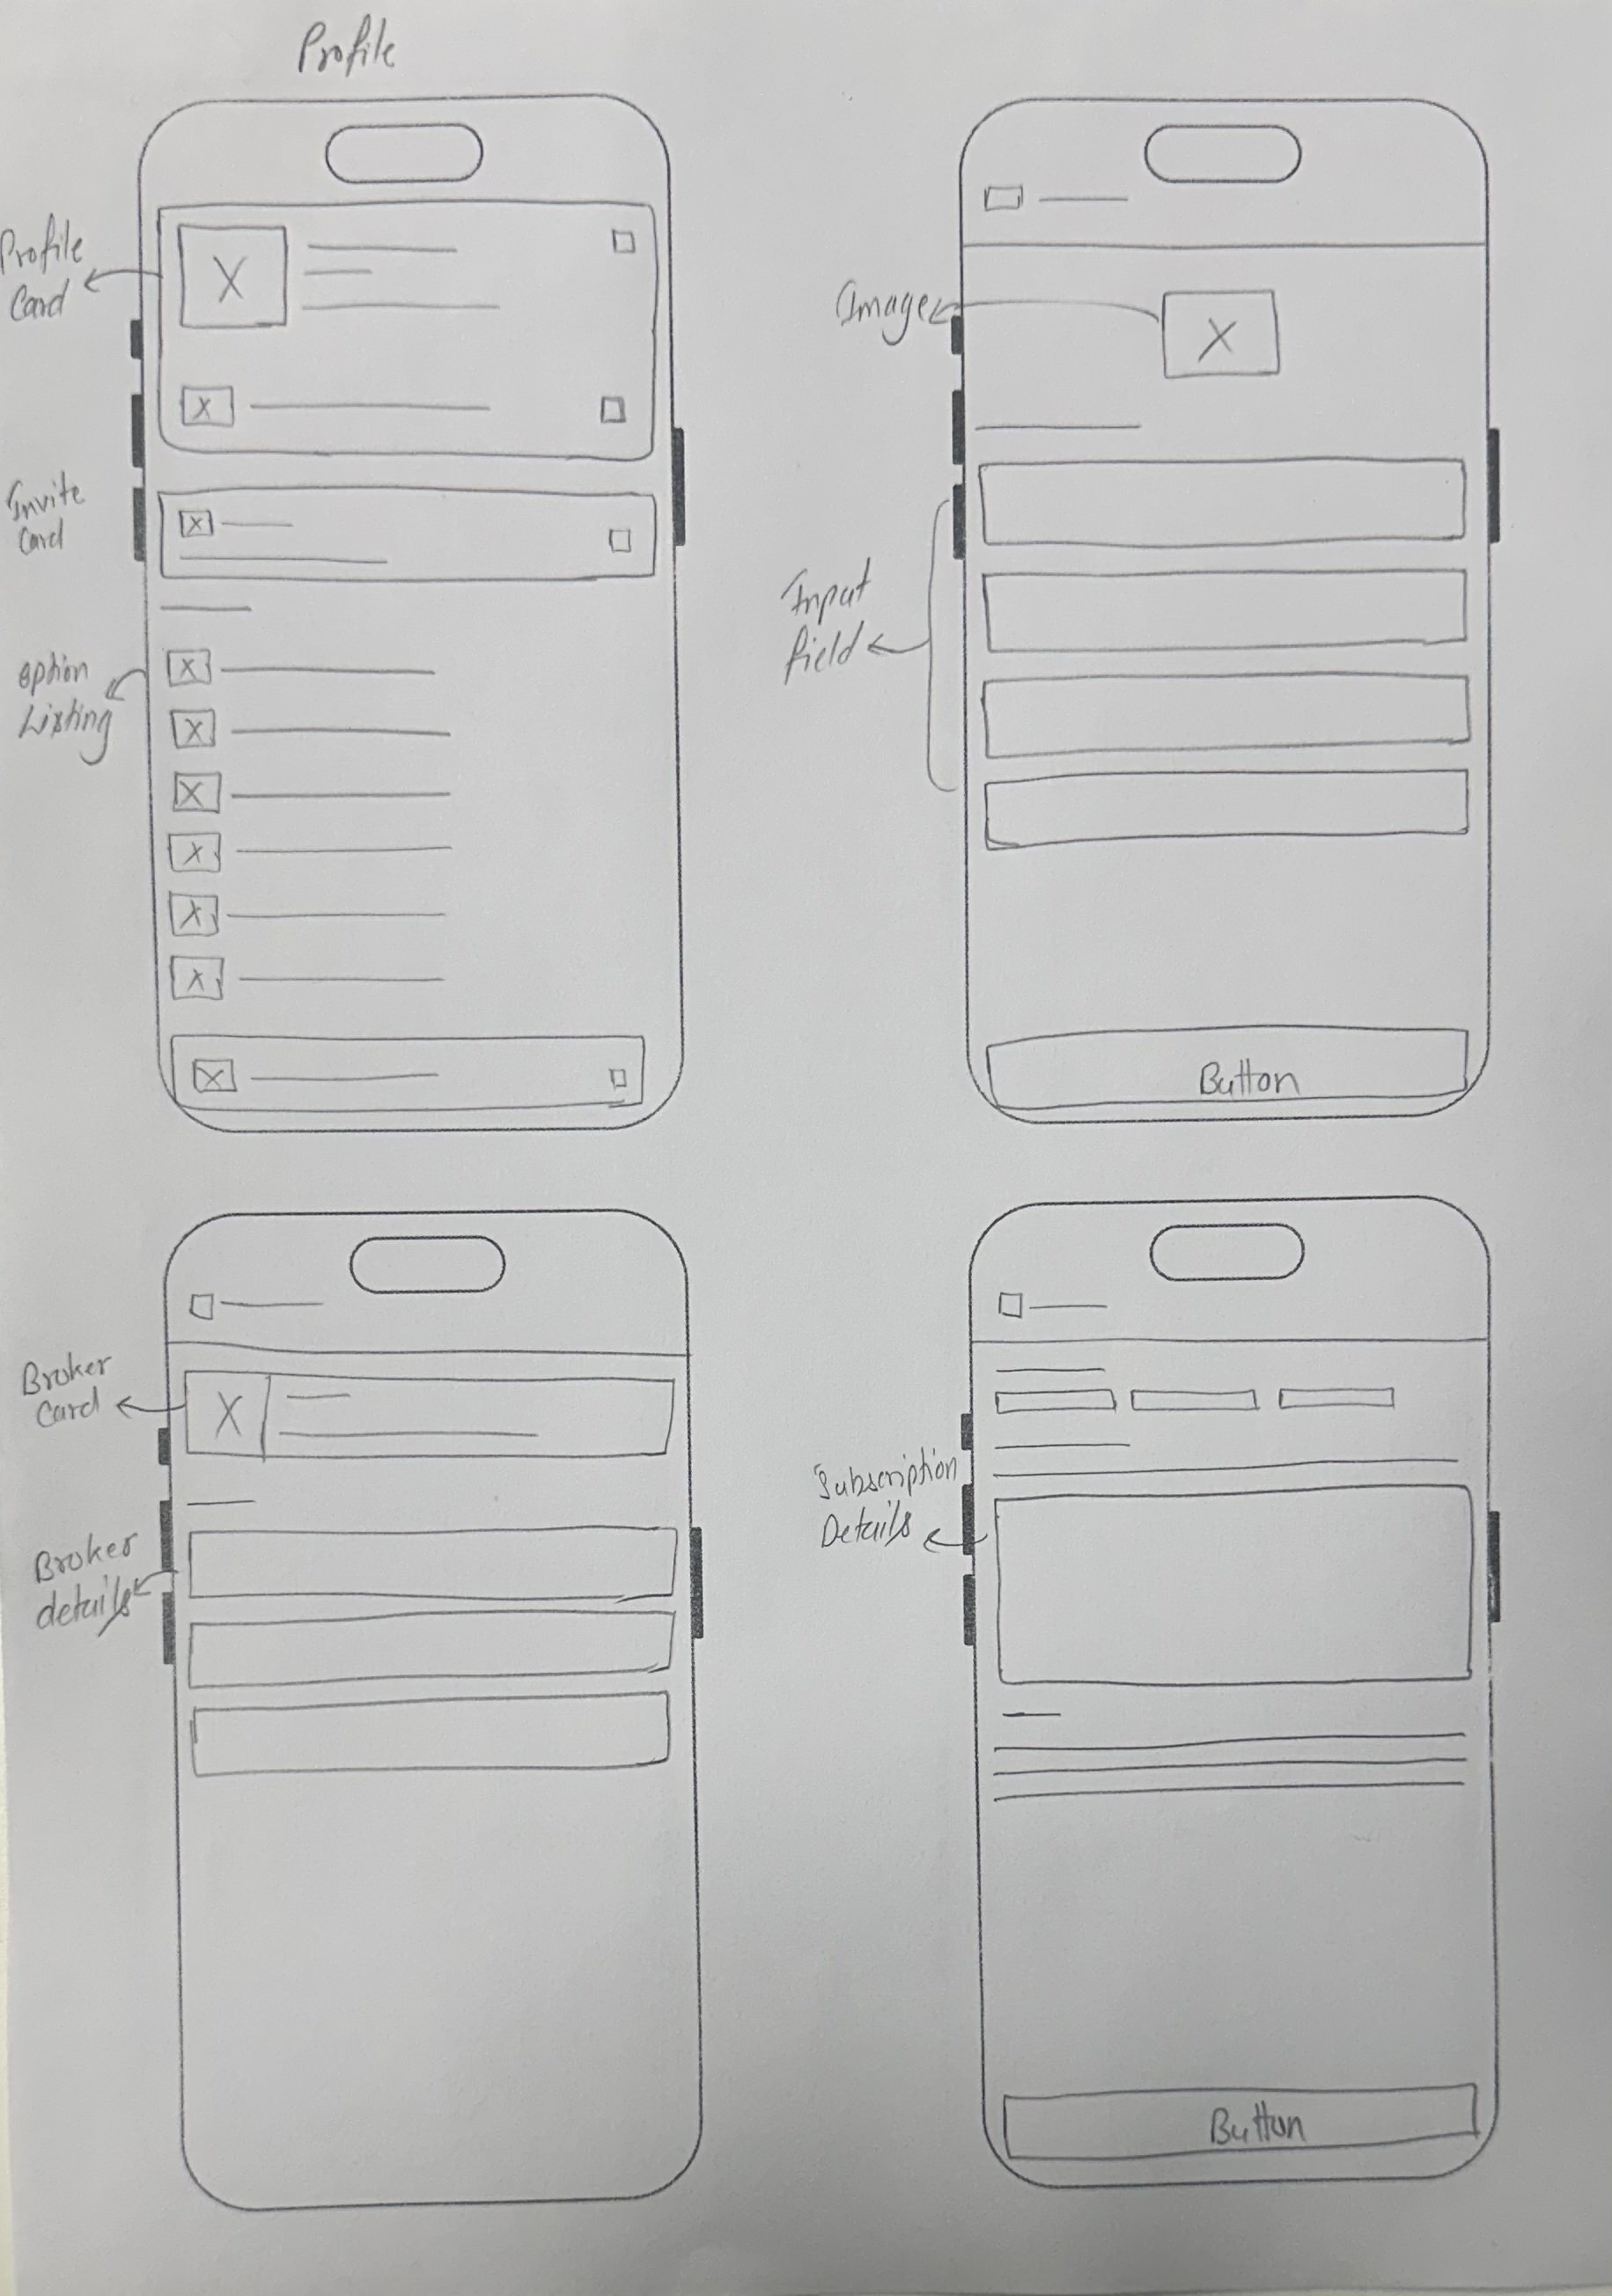 Profile
Profile
Card
Invite
Card
option
Listing
Image
Input
field
Button
Broker
Card
Broker
details
Subscription
Details
Button